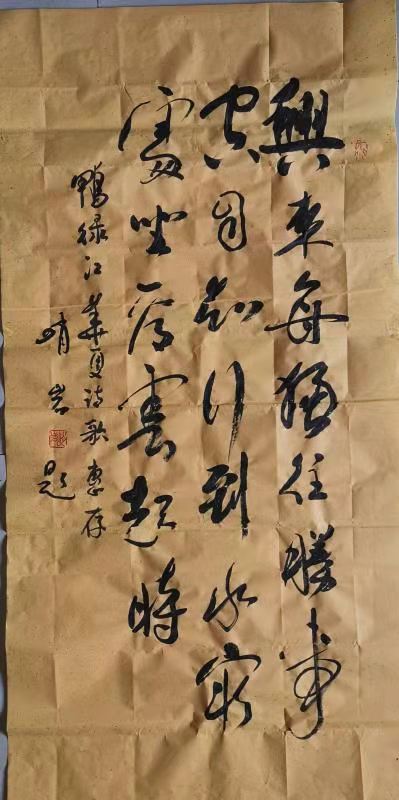 興来每獨往勝事
空自知行到水窮
處坐看雲起時
鴨绿江華夏诗歌惠存
峭岩题